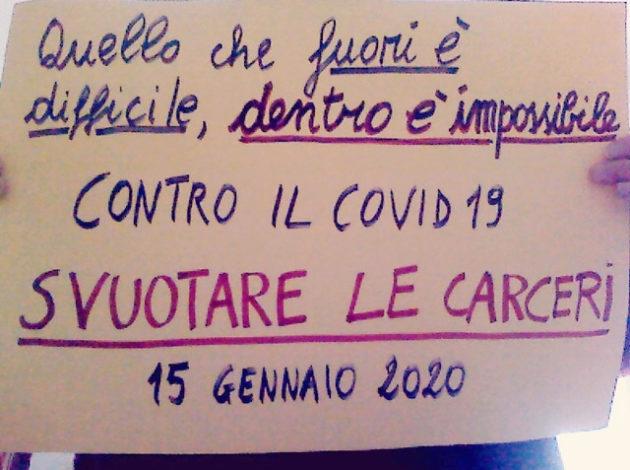 Quello che fuori è
difficile, dentro è impossibile
CONTRO IL COVID 19
SVUOTARE LE CARCERI
15 GENNAIO 2020